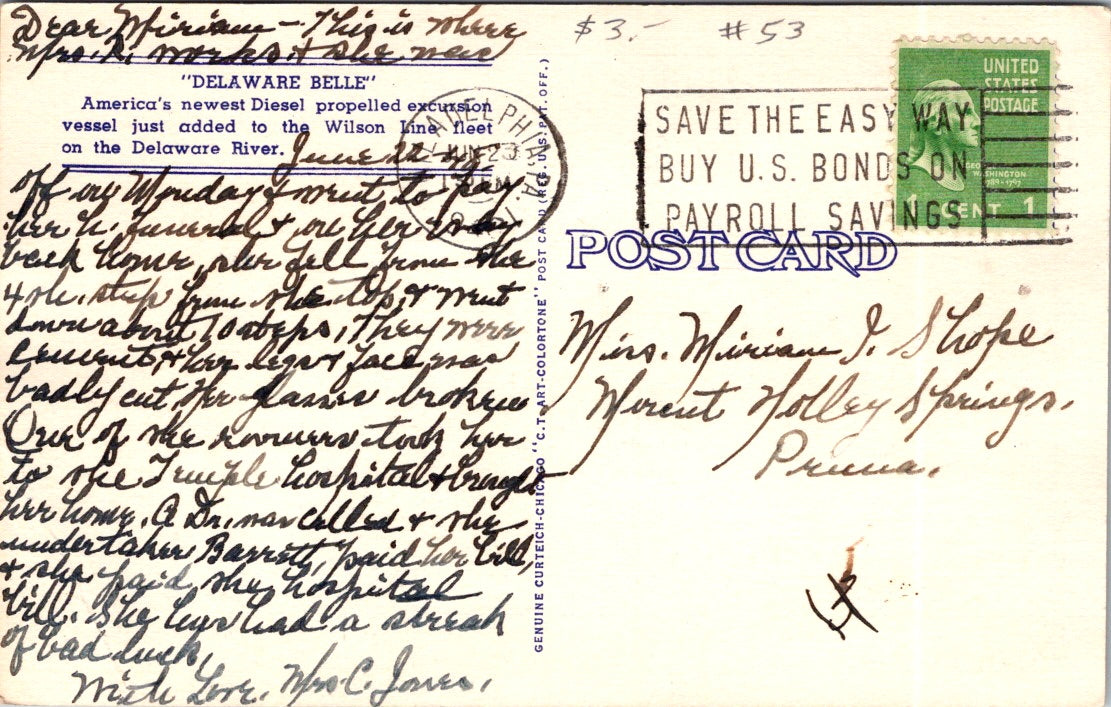 $3.- #53
Dear Miriam - This is where
Mrs. R. works & she was
"DELAWARE BELLE"
America's newest Diesel propelled excursion
vessel just added to the Wilson Line fleet
on the Delaware River.
June 22
off on Monday & went to pay
her funeral & on her way
back home, she fell from the
4 th. step from the top, & went
down about 10 steps, They were
cement, & her legs & face was
badly cut Her glasses broken
One of the roomers took her
to the Temple hospital & brought
her home. A Dr. was called & the
undertaker Barrett, paid her bill,
& she paid the hospital
bill. She has had a streak
of bad luck,
With Love, Mrs. C. Jones.
GENUINE CURTEICH-CHICAGO "C.T. ART-COLORTONE" POST CARD (REG. U.S. PAT. OFF.)
PHILADELPHIA, PA.
JUN 23
1951
SAVE THE EASY WAY
BUY U.S. BONDS ON
PAYROLL SAVINGS
UNITED
STATES
POSTAGE
GEORGE
WASHINGTON
1789-1797
1 CENT 1
POST CARD
Miss. Miriam I. Shope
Mount Holley Springs.
Penna.